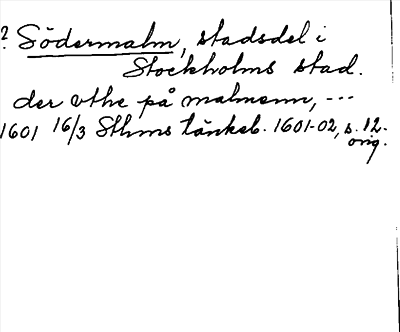 ? Södermalm, stadsdel i
Stockholms stad.
der vthe på malmenn, ---
1601 16/3 Sthms tänkeb. 1601-02, s. 12.
orig.